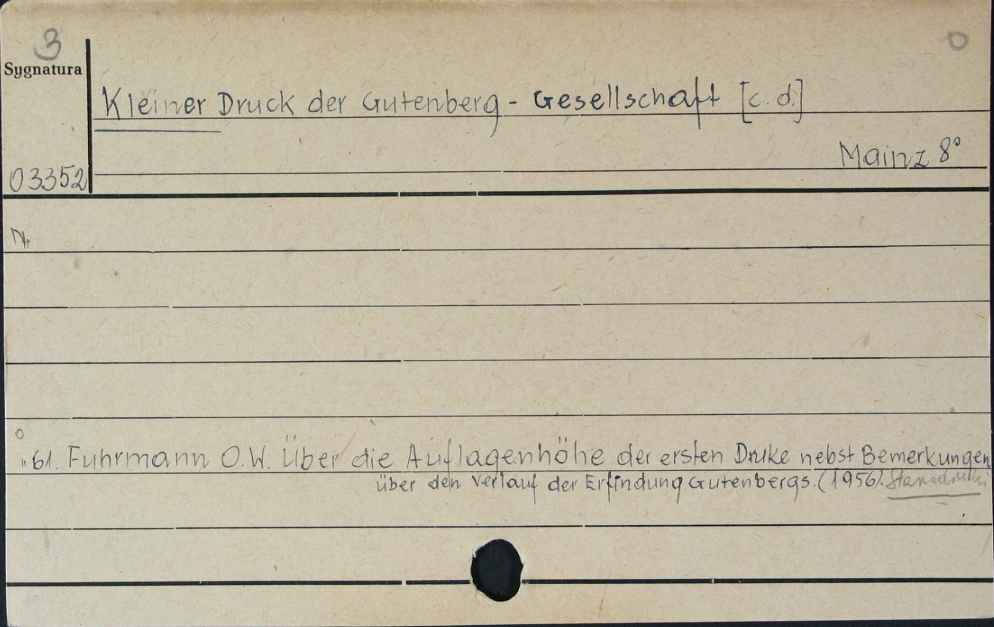 3
Sygnatura
Kleiner Druck der Gutenberg - Gesellschaft [c. d.]
Mainz 8°
03352
Nr
"61. Fuhrmann O.W. Über die Auflagenhöhe der ersten Druke nebst Bemerkungen
über den Verlauf der Erfindung Gutenbergs. (1956).